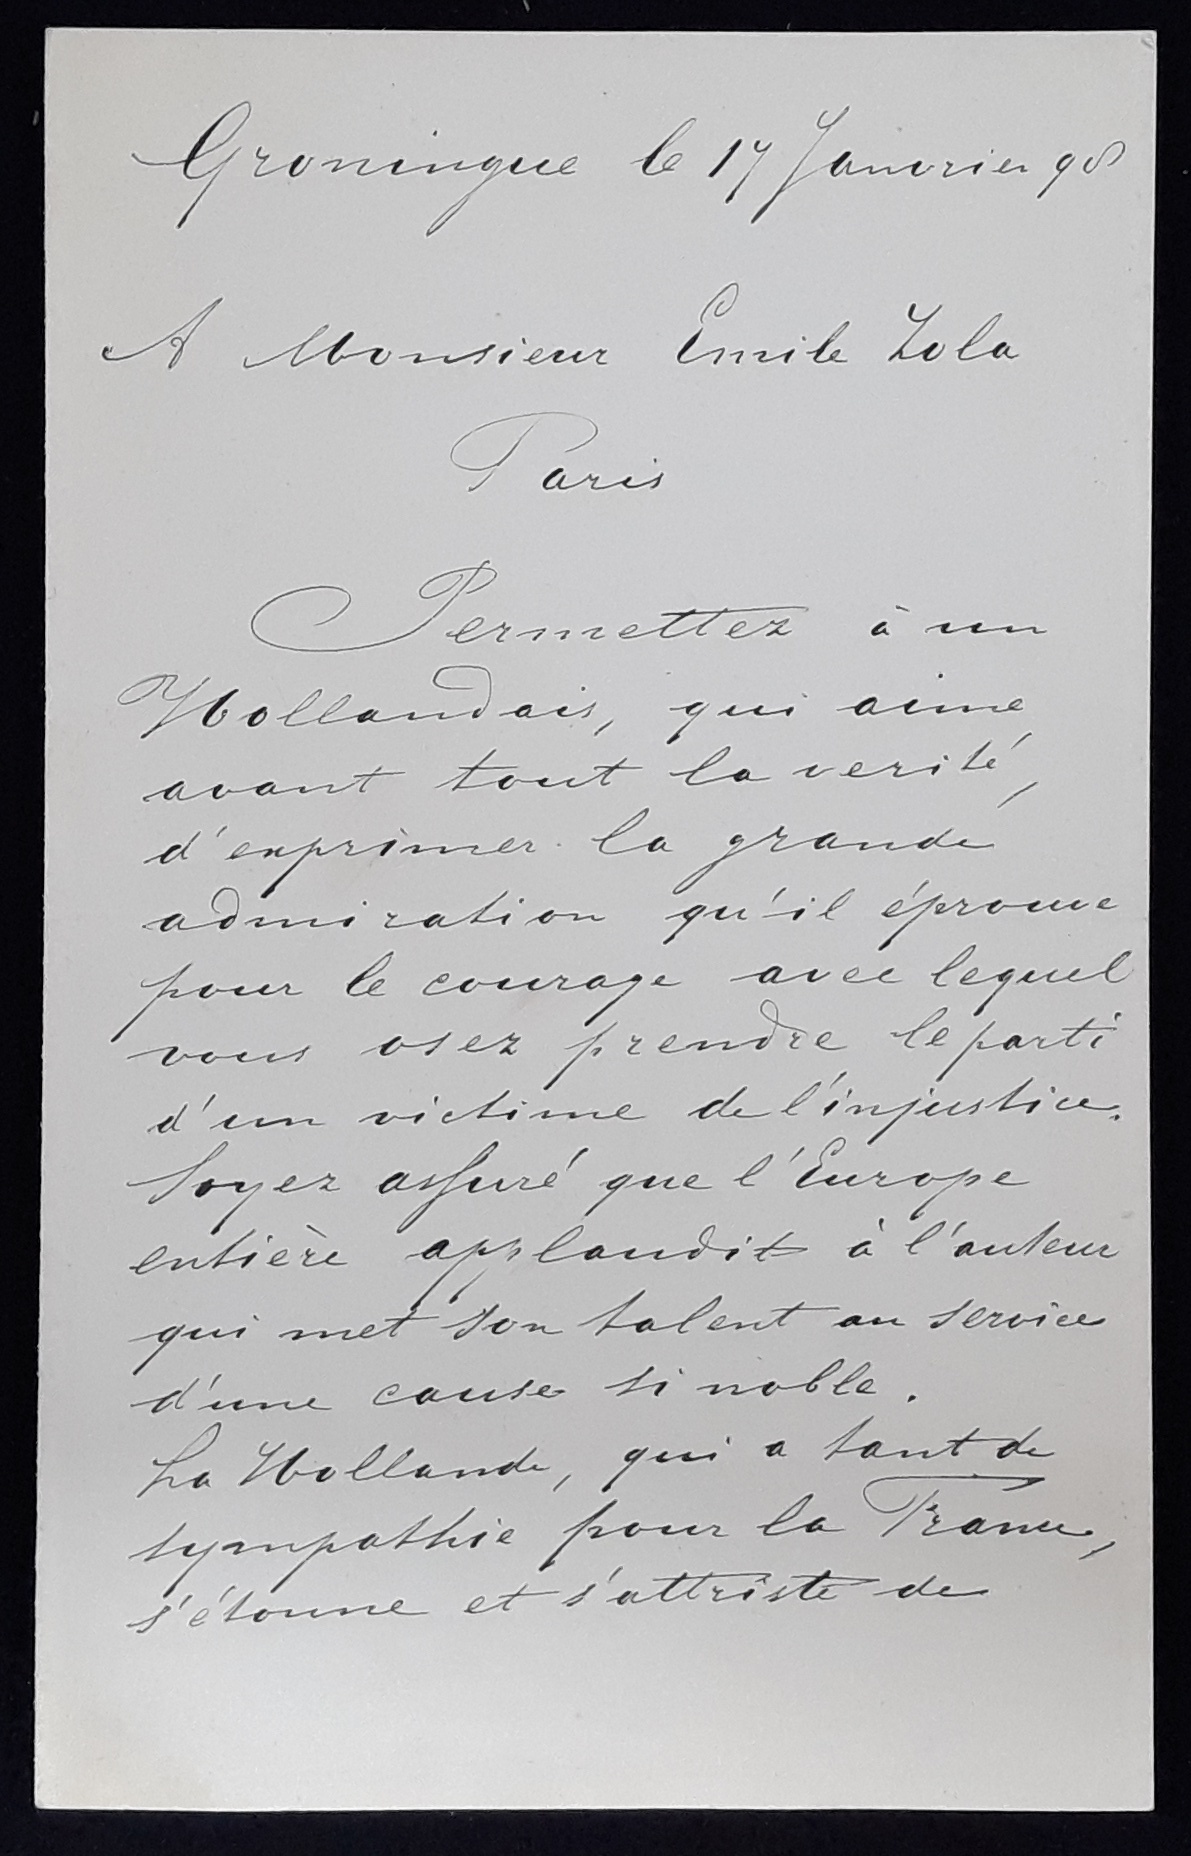 Groningue le 17 Janvrier 98
A Monsieur Emile Zola
Paris
Permettez à un
Hollandais, qui aime
avant tout la verité,
d'exprimer la grande
admiration qu'il éprouve
pour le courage avec lequel
vous osez prendre le parti
d'un victime de l'injustice.
Soyez assuré que l'Europe
entière applaudit à l'auteur
qui met son talent au service
d'une cause si noble.
La Hollande, qui a tant de
sympathie pour la France,
s'étonne et s'attriste de